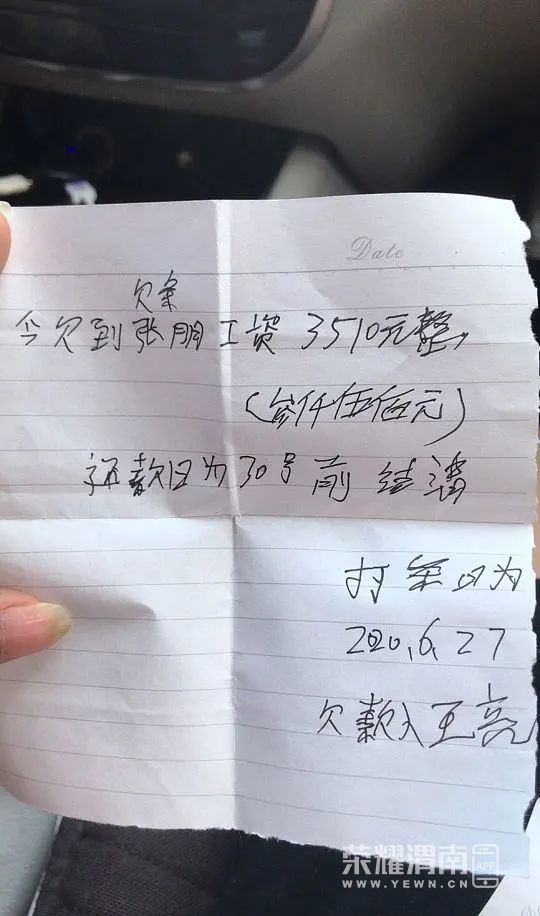 Date
欠条
今欠到张朋工资3510元整,
(叁仟伍佰元)
还款日为30号前结清
打条日为
2020.6.27
欠款人王亮
荣耀渭南APP
WWW.YEWN.CN